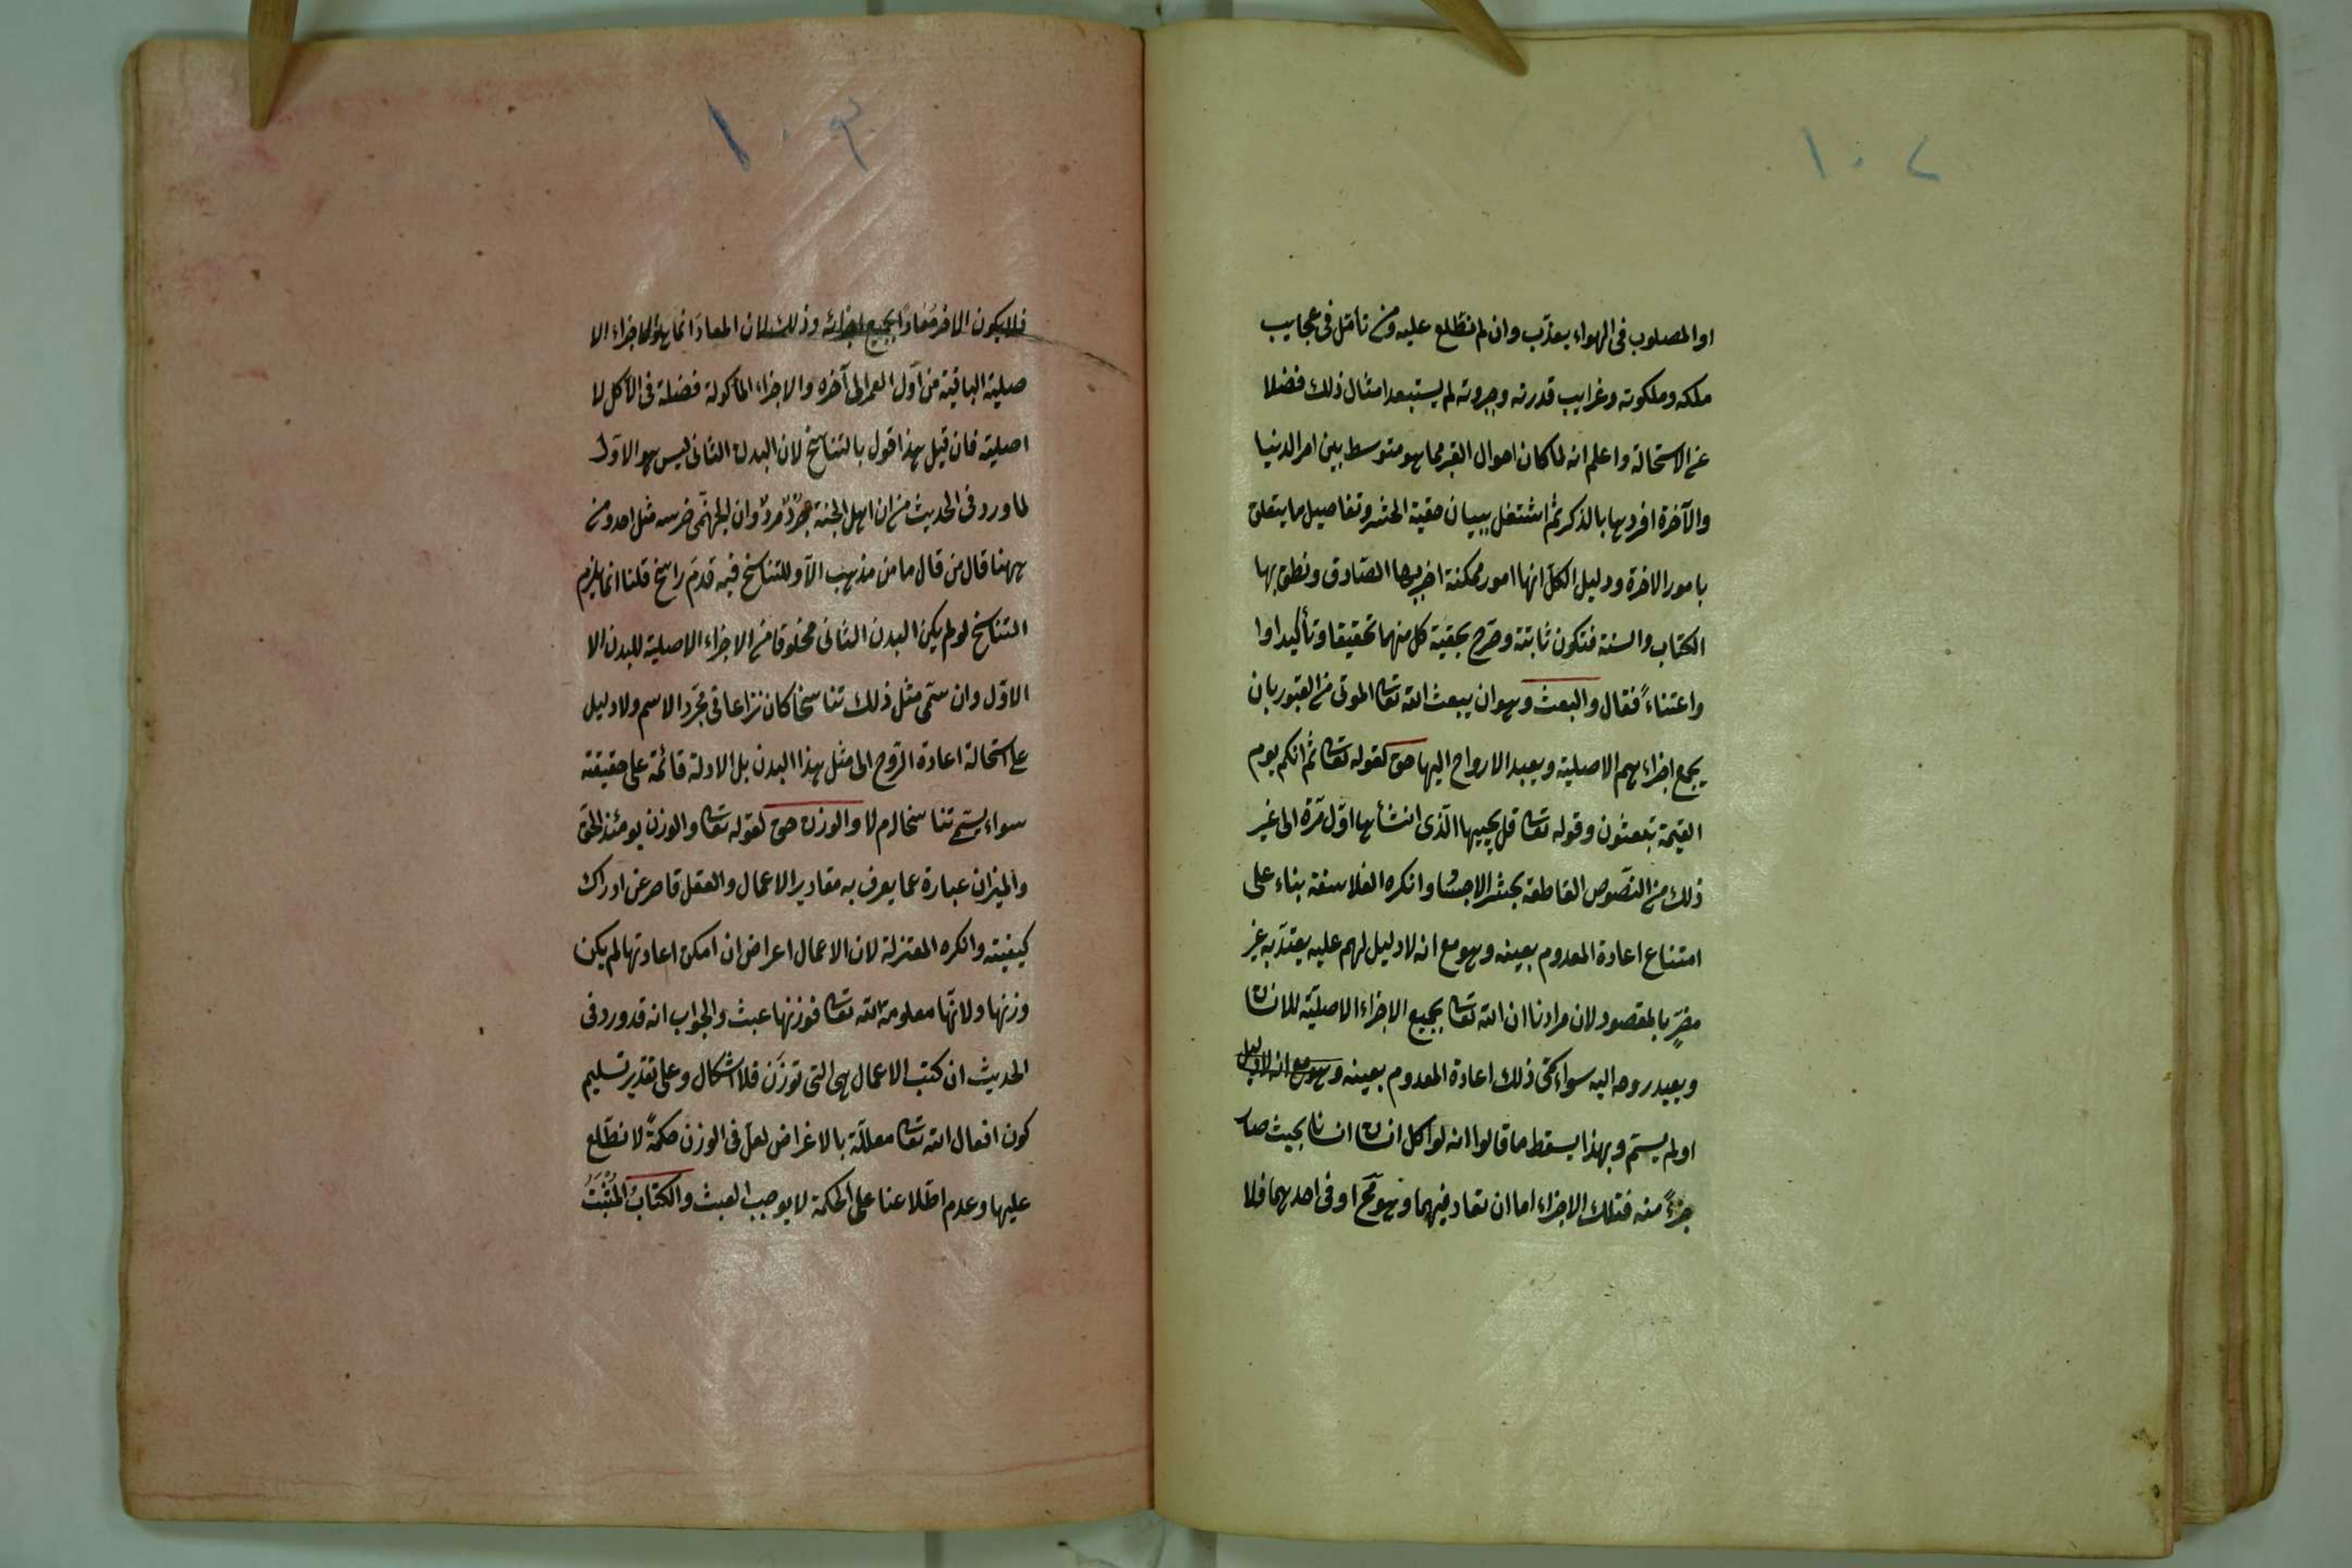 ١٠٢
او المصلوب فى الهواء يعذّب وان لم نطّلع عليه ومن تأمّل فى عجايب
ملكه وملكوته وغرايب قدرته وجبروته لم يستبعد امثال ذلك فضلا
عن الاستحالة واعلم انه لما كان احوال القبر مما هو متوسط بين امر الدنيا
والآخرة افردها بالذكر ثم اشتغل ببيان حقية الحشر وتفاصيل ما يتعلق
بامور الاخرة ودليل الكل انها امور ممكنة اخبر بها الصّادق ونطق بها
الكتاب والسنة فتكون ثابتة وصرّح بحقية كل منهما تحقيقا وتأكيدا وا
واعتناءً فقال والبعث وهو ان يبعث الله تعالى الموتى من القبور بان
يجمع اجزاءهم الاصلية ويعيد الارواح اليها حق لقوله تعالى ثم انكم يوم
القيمة تبعثون وقوله تعالى قل يحييها الّذى انشأها اوّل مرّة الى غير
ذلك من النصّوص القاطعة بحشر الاجساد وانكره الفلاسفة بناء على
امتناع اعادة المعدوم بعينه وهو مع انه لا دليل لهم عليه يعتدّ به غير
مضرٍّ بالمقصود لان مرادنا ان الله تعالى يجمع الاجزاء الاصليّة للانسان
ويعيد روحه اليه سواء سمّى ذلك اعادة المعدوم بعينه وهو مع انه لا دليل
او لم يسمّ وبهذا يسقط ما قالوا انه لو اكل انسان انسانا بحيث صار
جزءً منه فتلك الاجزاء اما ان تعاد فيهما وهو مح او فى احدهما فلا
١٠٣
فلا يكون الاخر مُعادًا بجميع اجزائه وذلك لان المعادَ انما هو الاجزاء الا
صلية الباقية من اوّل العمر الى آخره والاجزاء المأكولة فضلة فى الآكل لا
اصلية فان قيل هذا قول بالتناسخ لان البدن الثانى ليس هو الاوّل
لما ورد فى الحديث من ان اهل الجنة جُرْدٌ مردٌ وان الجهنّمى ضرسه مثل احد ومن
ههنا قال من قال ما من مذهب الاّ وللتناسخ فيه قدمَ راسخ قلنا انما يلزم
التناسخ لو لم يكن البدن الثانى مخلوقا من الاجزاء الاصلية للبدن الا
الاوّل وان سمّى مثل ذلك تناسخا كان نزاعا فى مجرّد الاسم ولا دليل
على استحالة اعادة الرّوح الى مثل هذا البدن بل الادلة قائمة على حقيقته
سواء يسمّى تناسخا ام لا والوزن حق لقوله تعالى والوزن يومئذ الحق
والميزان عبارة عما يعرف به مقادير الاعمال والعقل قاصر عن ادراك
كيفيته وانكره المعتزلة لان الاعمال اعراض ان امكن اعادتها لم يكن
وزنها ولانّها معلومة الله تعالى فوزنها عبث والجواب انه قد ورد فى
الحديث ان كتب الاعمال هى التى توزَن فلا اشكال وعلى تقدير تسليم
كون افعال الله تعالى معللّة بالاغراض لعلّ فى الوزن حكمةً لا نطّلع
عليها وعدم اطّلاعنا على الحكمة لا يوجب العبث والكتابُ المُثْبَتُ